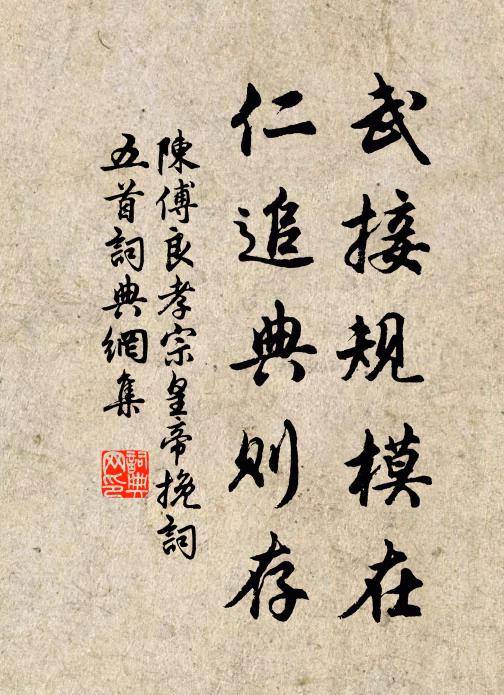 武接規模在
仁追典則存
陳傅良孝宗皇帝挽詞
五首詞典網集
詞典
网印